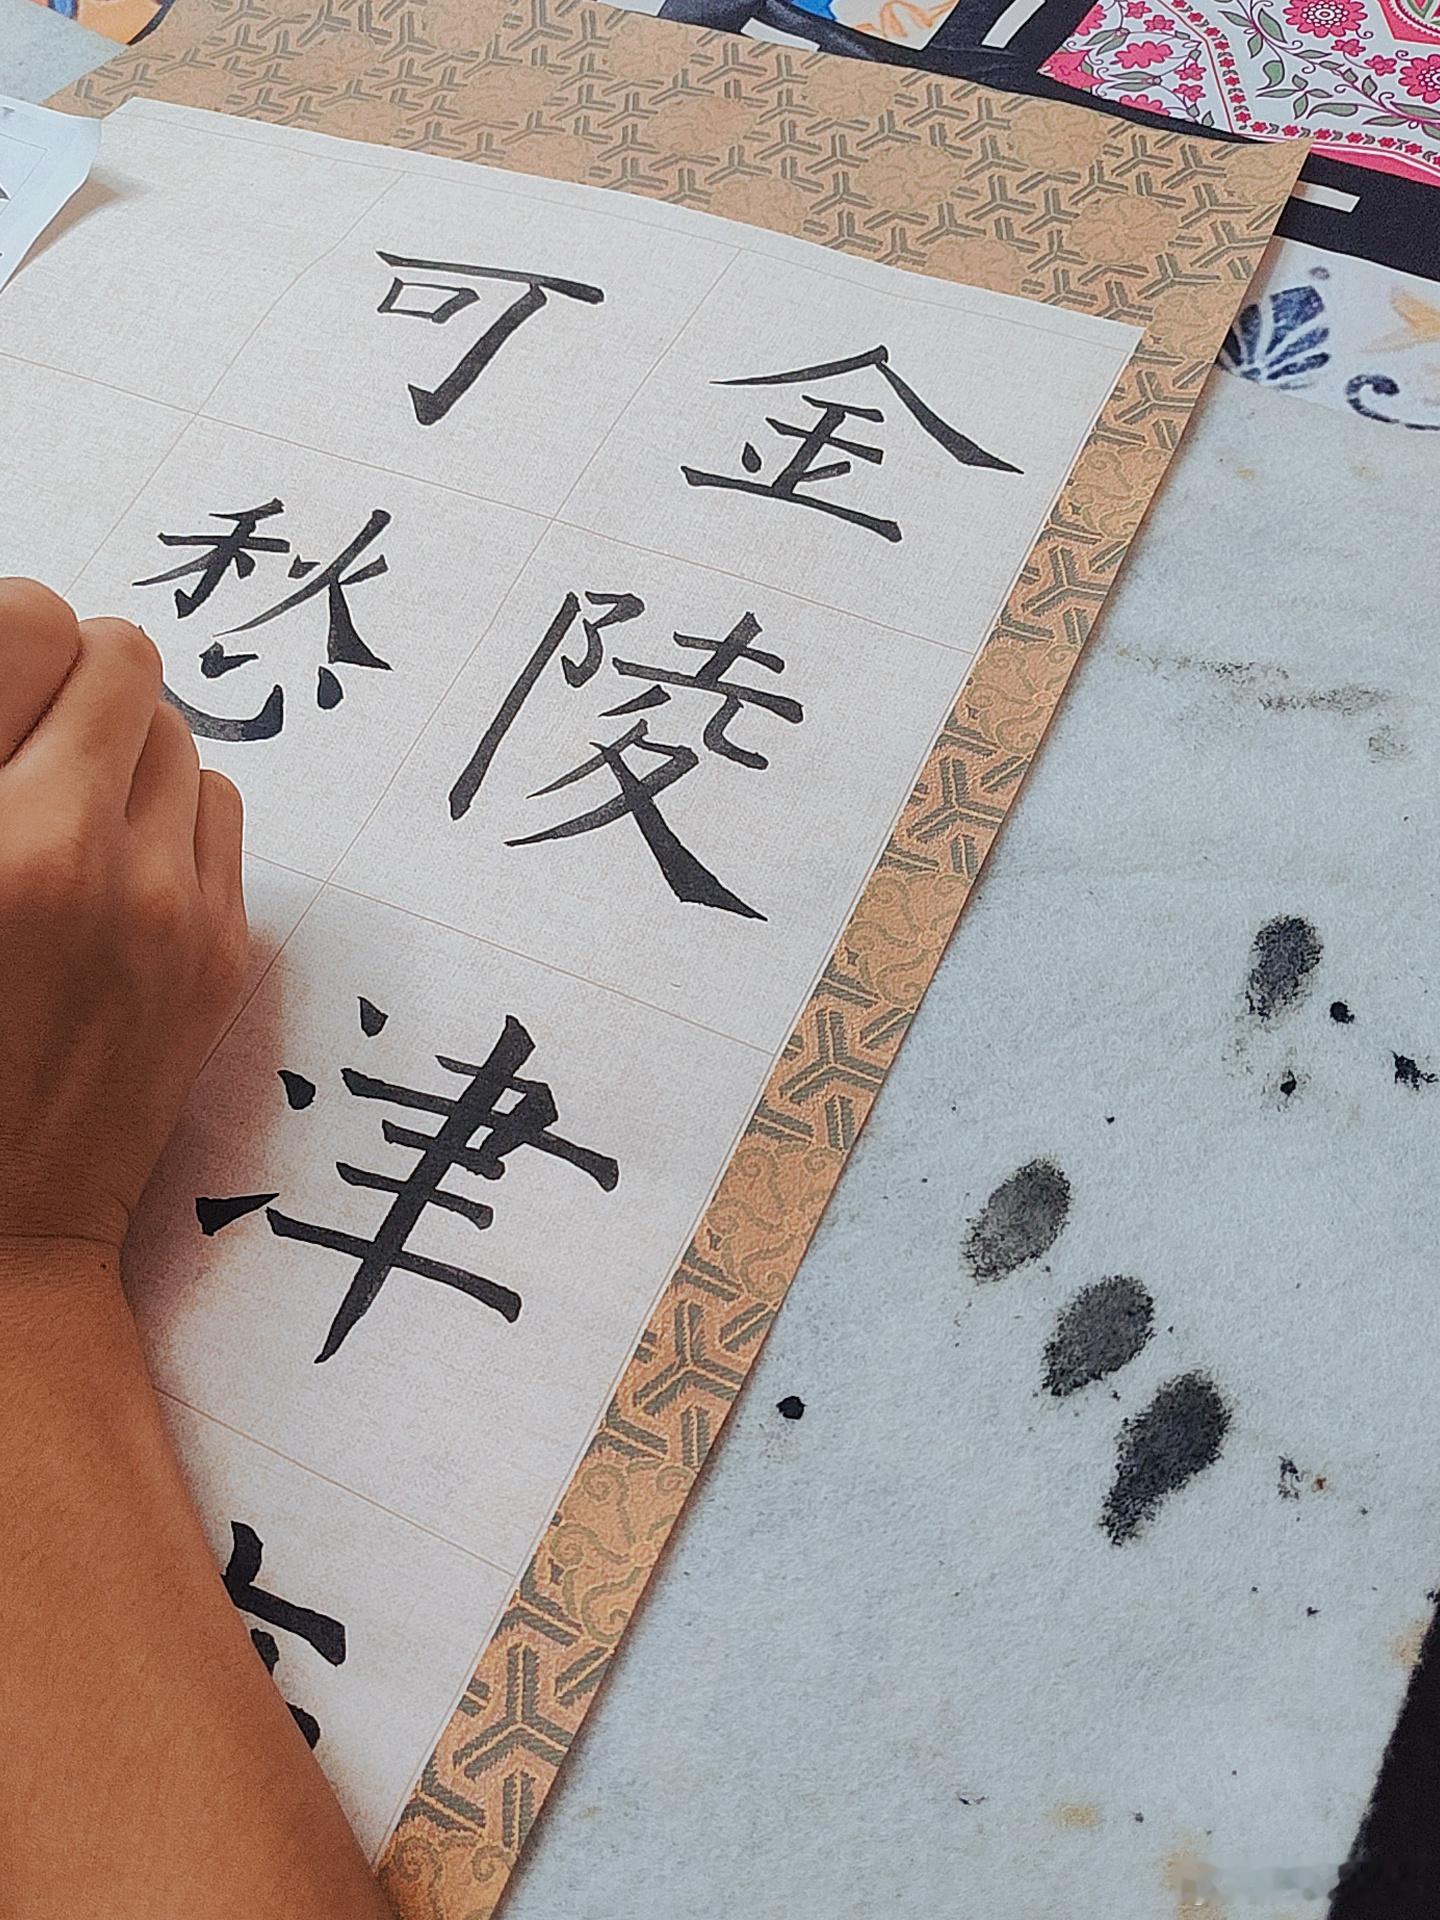 金陵津
可愁